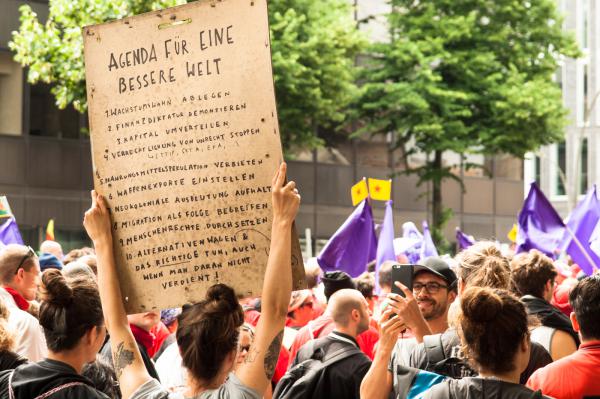 AGENDA FÜR EINE
BESSERE WELT
1. WACHSTUMSWAHN ABLEGEN
2. FINANZDIKTATUR DEMONTIEREN
3. KAPITAL UMVERTEILEN
4. VERRECHTLICHUNG VON UNRECHT STOPPEN
(TTIP, CETA, EPA)
5. NAHRUNGSMITTELSPEKULATION VERBIETEN
6. WAFFENEXPORTE EINSTELLEN
7. NEOKOLONIALE AUSBEUTUNG AUFHALT
8. MIGRATION ALS FOLGE BEGREIFEN
9. MENSCHENRECHTE DURCHSETZEN
10. ALTERNATIVEN WAGEN &
DAS RICHTIGE TUN, AUCH
WENN MAN DARAN NICHT
VERDIENT!